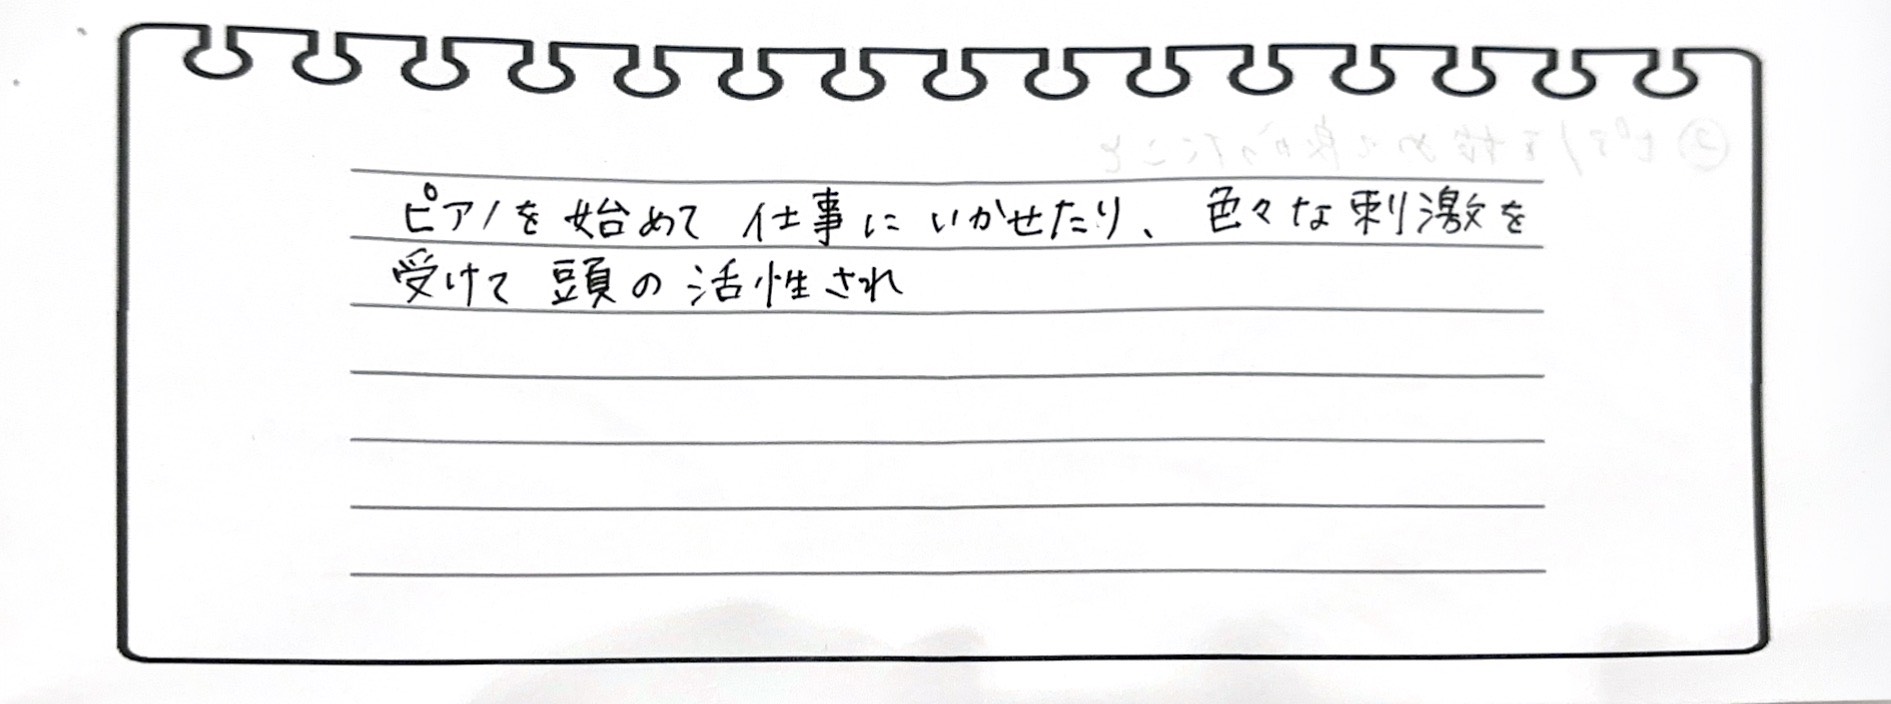 ピアノを始めて仕事にいかせたり、色々な刺激を
受けて頭の活性され